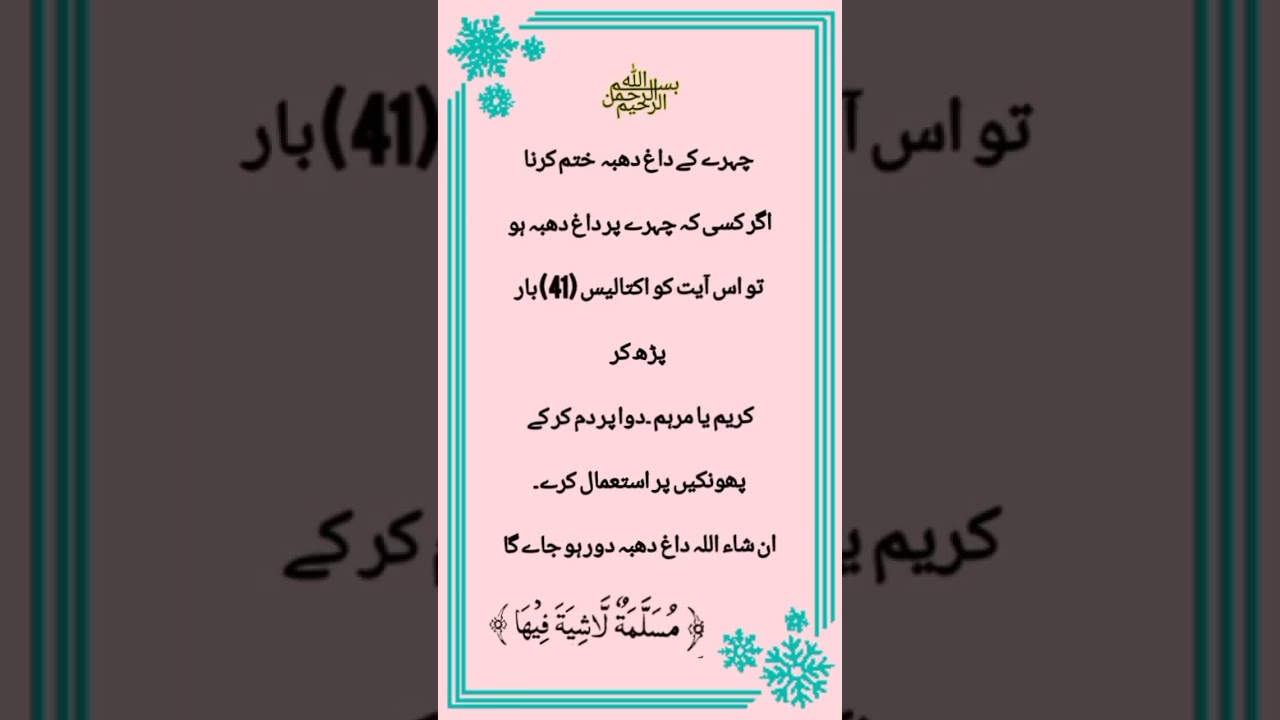 بسم الله الرحمن الرحيم
چہرے کے داغ دھبہ ختم کرنا
اگر کسی کہ چہرے پر داغ دھبہ ہو
تو اس آیت کو اکتالیس (41) بار
پڑھ کر
کریم یا مرہم۔دوا پر دم کر کے
پھونکیں پر استعمال کرے۔
ان شاء اللہ داغ دھبہ دور ہو جاے گا
﴿ مُسَلَّمَةٌ لَّاشِيَةَ فِيْهَا ﴾
تو اس آ
(41) بار
کریم یا
کر کے